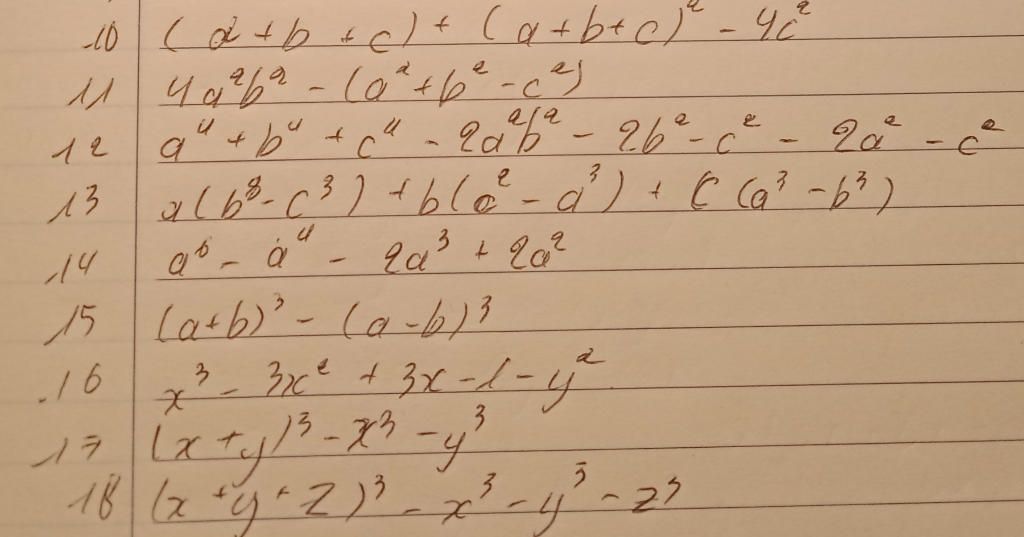 10 (a² + b + c) + (a + b + c)² - 4c²
11 4a²b² - (a² + b² - c²)
12 a⁴ + b⁴ + c⁴ - 2a²b² - 2b² - c² - 2a² - c²
13 a(b³ - c³) + b(c² - a³) + c(a³ - b³)
14 a⁶ - a⁴ - 2a³ + 2a²
15 (a+b)³ - (a-b)³
16 x³ - 3x² + 3x - 1 - y²
17 (x + y)³ - x³ - y³
18 (x + y + z)³ - x³ - y³ - z³